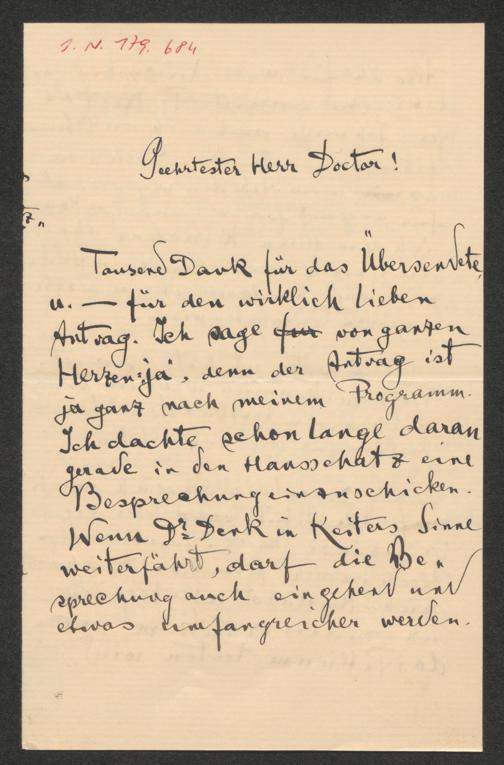 I. N. 179.684
Geehrtester Herr Doctor!
Tausend Dank für das Übersendete,
u. — für den wirklich lieben
Antrag. Ich sage für von ganzen
Herzen „ja", denn der Antrag ist
ja ganz nach meinem Programm.
Ich dachte schon lange daran
gerade in den Hausschatz eine
Besprechung einzuschicken.
Wenn Dr. Denk in Keiters Sinne
weiterfährt, darf die Be-
sprechung auch eingehend und
etwas umfangreicher werden.